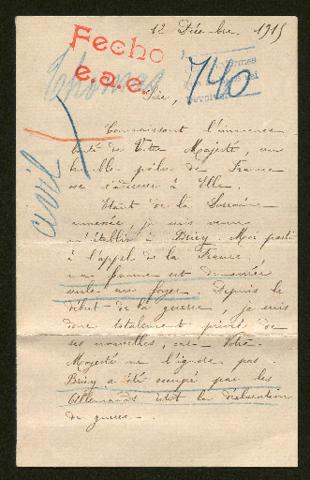 12 Décembre 1915
Fecho
e.a.e.
Thomas
740
civil
Sire,
Connaissant l'immense
bonté de Votre Majesté, un
humble poilu de France
se s'adresser à Elle.
Etant de la Lorraine
annexée je suis venu
m'établir à Briey. Moi parti
à l'appel de la France
ma femme est demeurée
seule au foyer. Depuis le
début de la guerre, je suis
donc totalement privé de
ses nouvelles, car Votre
Majesté ne l'ignore pas
Briey a été occupé par les
Allemands sitôt la déclaration
de guerre.